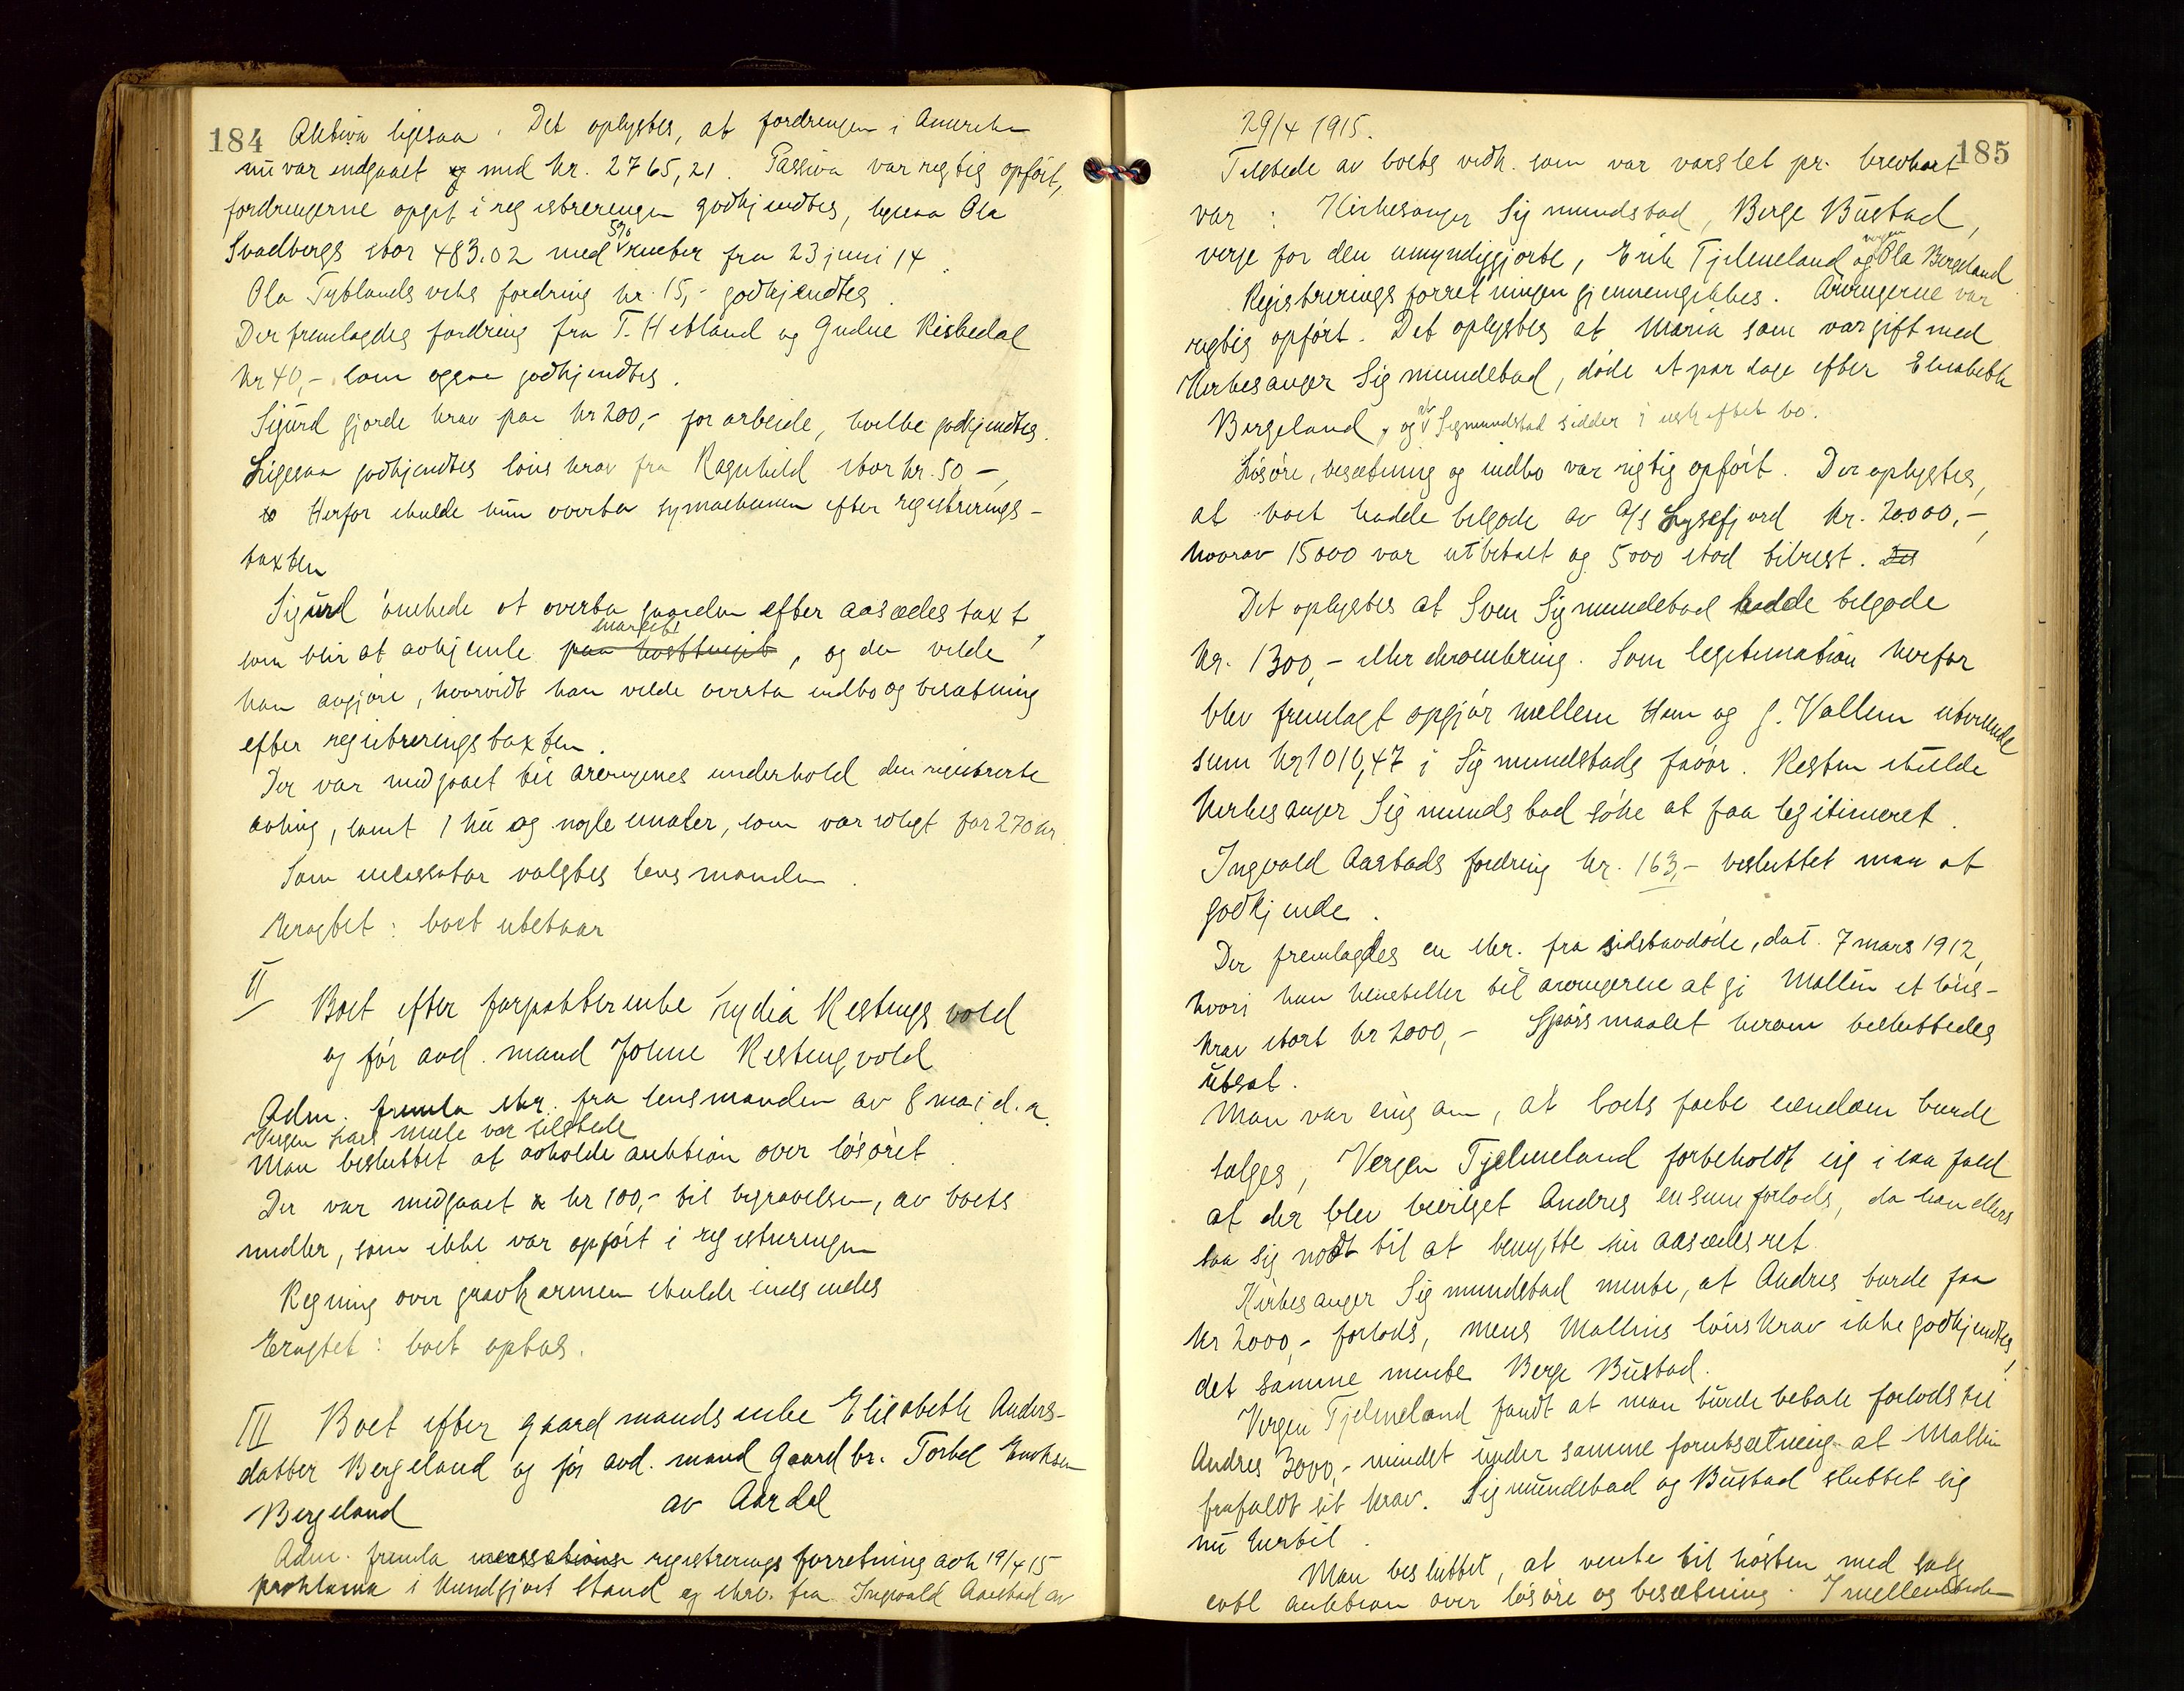 184 Aktiva ligesaa. Det oplystes, at fordringen i Amerika
nu var indgaaet med kr. 2765,21. Passiva var rigtig opført,
fordringerne opgit i registreringen godkjendtes, ligesaa Ola
Svadbergs stor 483.02 med 5% renter fra 23 juni 14.
Ola Tyblands enkes fordring kr. 15,- godkjendtes.
Der fremlagdes fordring fra T. Hetland og Gudne Riskedal
kr 40,- som ogsaa godkjendtes.
Sigurd gjorde krav paa kr 200,- for arbeide, hvilke godkjendtes.
Ligesaa godkjendtes lønskrav fra Ragnhild stor kr. 50 -,
Herfor skulde hun overta symaskinen efter registrerings-
taxten
Sigurd ønskede at overta gaarden efter aasædestaxt,
som blir at avhjemle paa hosttinget, og da vilde
han avgjøre, hvorvidt han vilde overta indbo og besætning
efter registreringstaxten.
Der var medgaaet til arvingenes underhold den registrerte
avling, samt 1 ku og nogle smaler, som var solgt for 270 kr
Som incassator valgtes lensmanden.
Eragtet: boet utestaar
II
Boet efter forpakterenke Lydia Kestingsvold
og før avd. mand Johne Kestingvold
Adm. fremla skr. fra lensmanden av 8 mai d.a.
Vergen Lars Mæle var tilstede
Man besluttet at avholde auktion over løsøret.
Der var medgaaet kr 100,- til begravelsen, av boets
midler, som ikke var opført i registreringen
Regning over gravkarmen skulde indsendes
Eragtet: boet optas.
III Boet efter gaardmandsenke Elisabeth Anders-
datter Bergeland og før avd. mand Gaardbr. Torkel Eriksen
Bergeland av Aardal
Adm. fremla registrerings forretning avh 19/4 15
proklama i kundgjort stand og skr. fra Ingvald Aarstad av
185
29/4 1915.
Tilstede av boets vedk. som var varslet pr. brevkort
var: Kirkesanger Sigmundstad, Berge Bustad,
verje for den umyndiggjorte, Erik Tjelmeland og vergen Ola Bergeland
Registreringsforretningen gjennemgikkes. Arvingerne var
rigtig opført. Det oplystes at Maria som var gift med
Kirkesanger Sigmundstad, døde et par dage efter Elisabeth
Bergeland, og at Sigmundstad sidder i uskiftet bo.
Løsøre, besætning og indbo var rigtig opført. Der oplystes,
at boet hadde tilgode av A/S Lysefjord kr. 20.000,-,
hvorav 15000 var utbetalt og 5000 stod tilrest. Det
Det oplystes at Sven Sigmundstad hadde tilgode
kr. 1300,- eller deromkring. Som legitimation herfor
blev fremlagt opgjør mellem Ham og G. Vallem utvisende
sum kr 1010,47 i Sigmundstads favør. Resten skulde
Kirkesanger Sigmundstad søke at faa legitimeret.
Ingvald Aarstads fordring kr. 163,- besluttet man at
godkjende.
Der fremlagdes en skr. fra sidstavdøde, dat. 7 mars 1912,
hvori hun henstiller til arvingerne at gi Mallin et løns-
krav stort kr 2000,- Spørsmaalet herom besluttedes
utsat.
Man var enig om, at boets faste eiendom burde
sælges, Vergen Tjelmeland forbeholdt sig i saa fald
at der blev bevilget Andres en sum forlods, da han ellers
saa sig nødt til at benytte sin aasædesret.
Kirkesanger Sigmundstad mente, at Andres burde faa
kr 2000,- forlods, mens Mallins lønskrav ikke godkjendtes,
det samme mente Berge Bustad.
Vergen Tjelmeland fandt at man burde betale forlods til
Andres 3000,- mindst under samme forutsætning at Mallin
frafaldt sit krav. Sigmundstad og Bustad sluttet sig
nu hertil.
Man besluttet, at vente til høsten med salg
evtl auktion over løsøre og besætning. I mellemtiden